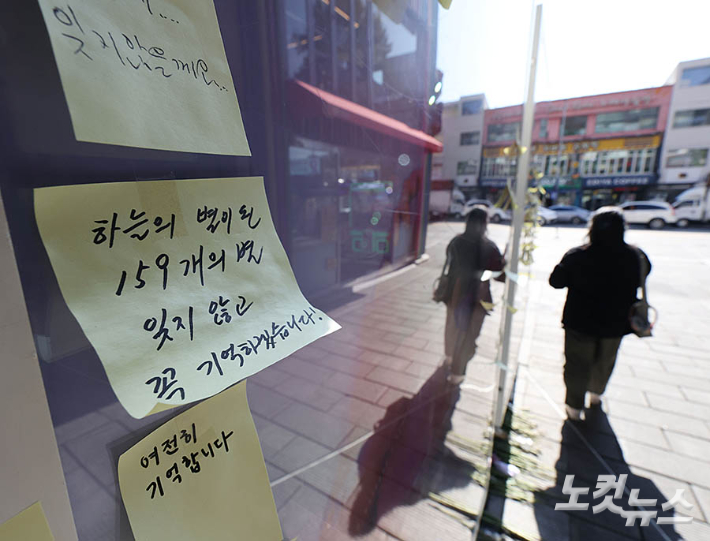 잊지않을게요...
하늘의 별이된
159개의 별
잊지 않고
꼭 기억하겠습니다!
여전히
기억합니다
COFFEE
노컷뉴스